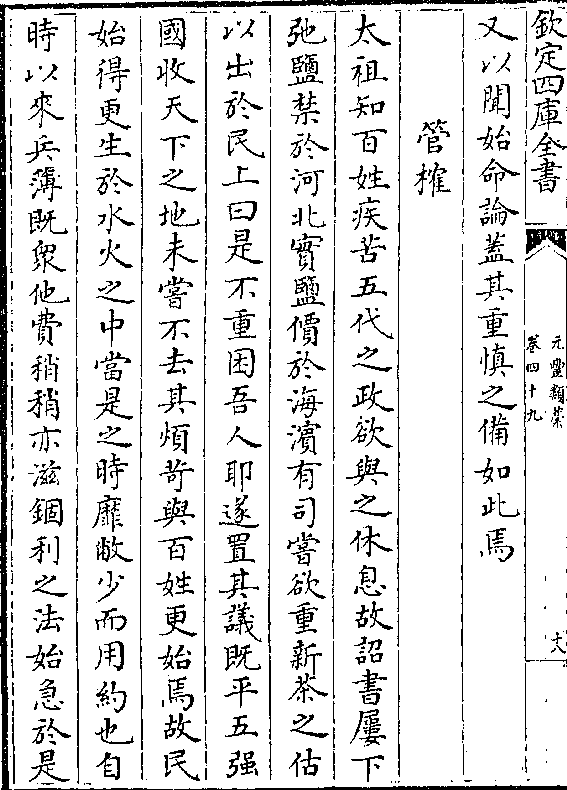 欽定四庫全書
元豐類藁
卷四十九
十八
又以聞始命論蓋其重慎之備如此焉
管榷
太祖知百姓疾苦五代之政欲與之休息故詔書屢下
弛鹽禁於河北實鹽價於海濱有司嘗欲重新茶之估
以出於民上曰是不重困吾人耶遂置其議既平五强
國收天下之地未嘗不去其煩苛與百姓更始焉故民
始得更生於水火之中當是之時靡敝少而用約也自
時以來兵薄既衆他費稍稍亦滋錮利之法始急於是